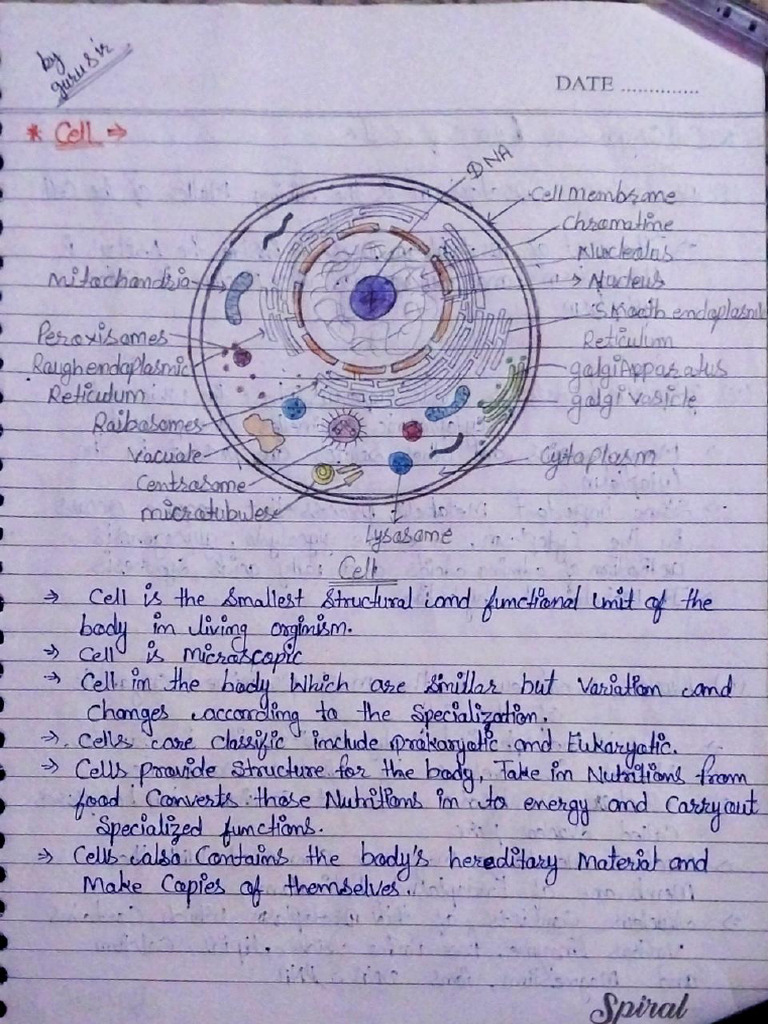 by
guru sir
DATE ..............
* Cell →
DNA
Cell membrane
Chromatine
Nucleolus
→ Nucleus
Smooth endoplasmic
Reticulum
golgi Apparatus
golgi vasicle
Cytoplasm
Mitochondria
Peroxisomes
Rough endoplasmic
Reticulum
Raibosomes
Vacuale
Centrosome
microtubulese
Lysosome
Cell
→ Cell is the Smallest Structural and functional unit of the
body in living orginism.
→ Cell is Microscopic
→ Cell in the body Which are Smillar but Variation and
Changes according to the Specialization.
→ Cells are classific include prokaryotic and Eukaryotic.
→ Cells provide Structure for the body, Take in Nutritions from
food Converts those Nutritions in to energy and Carryout
Specialized functions.
→ Cells also Contains the body's hereditary Material and
Make Copies of themselves.
Spiral